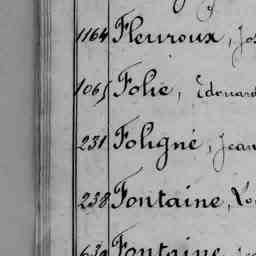 1164 Fleuroux, Jos
1065 Folie, Edouard
231 Foligné, Jean
238 Fontaine,
639 Fontaine